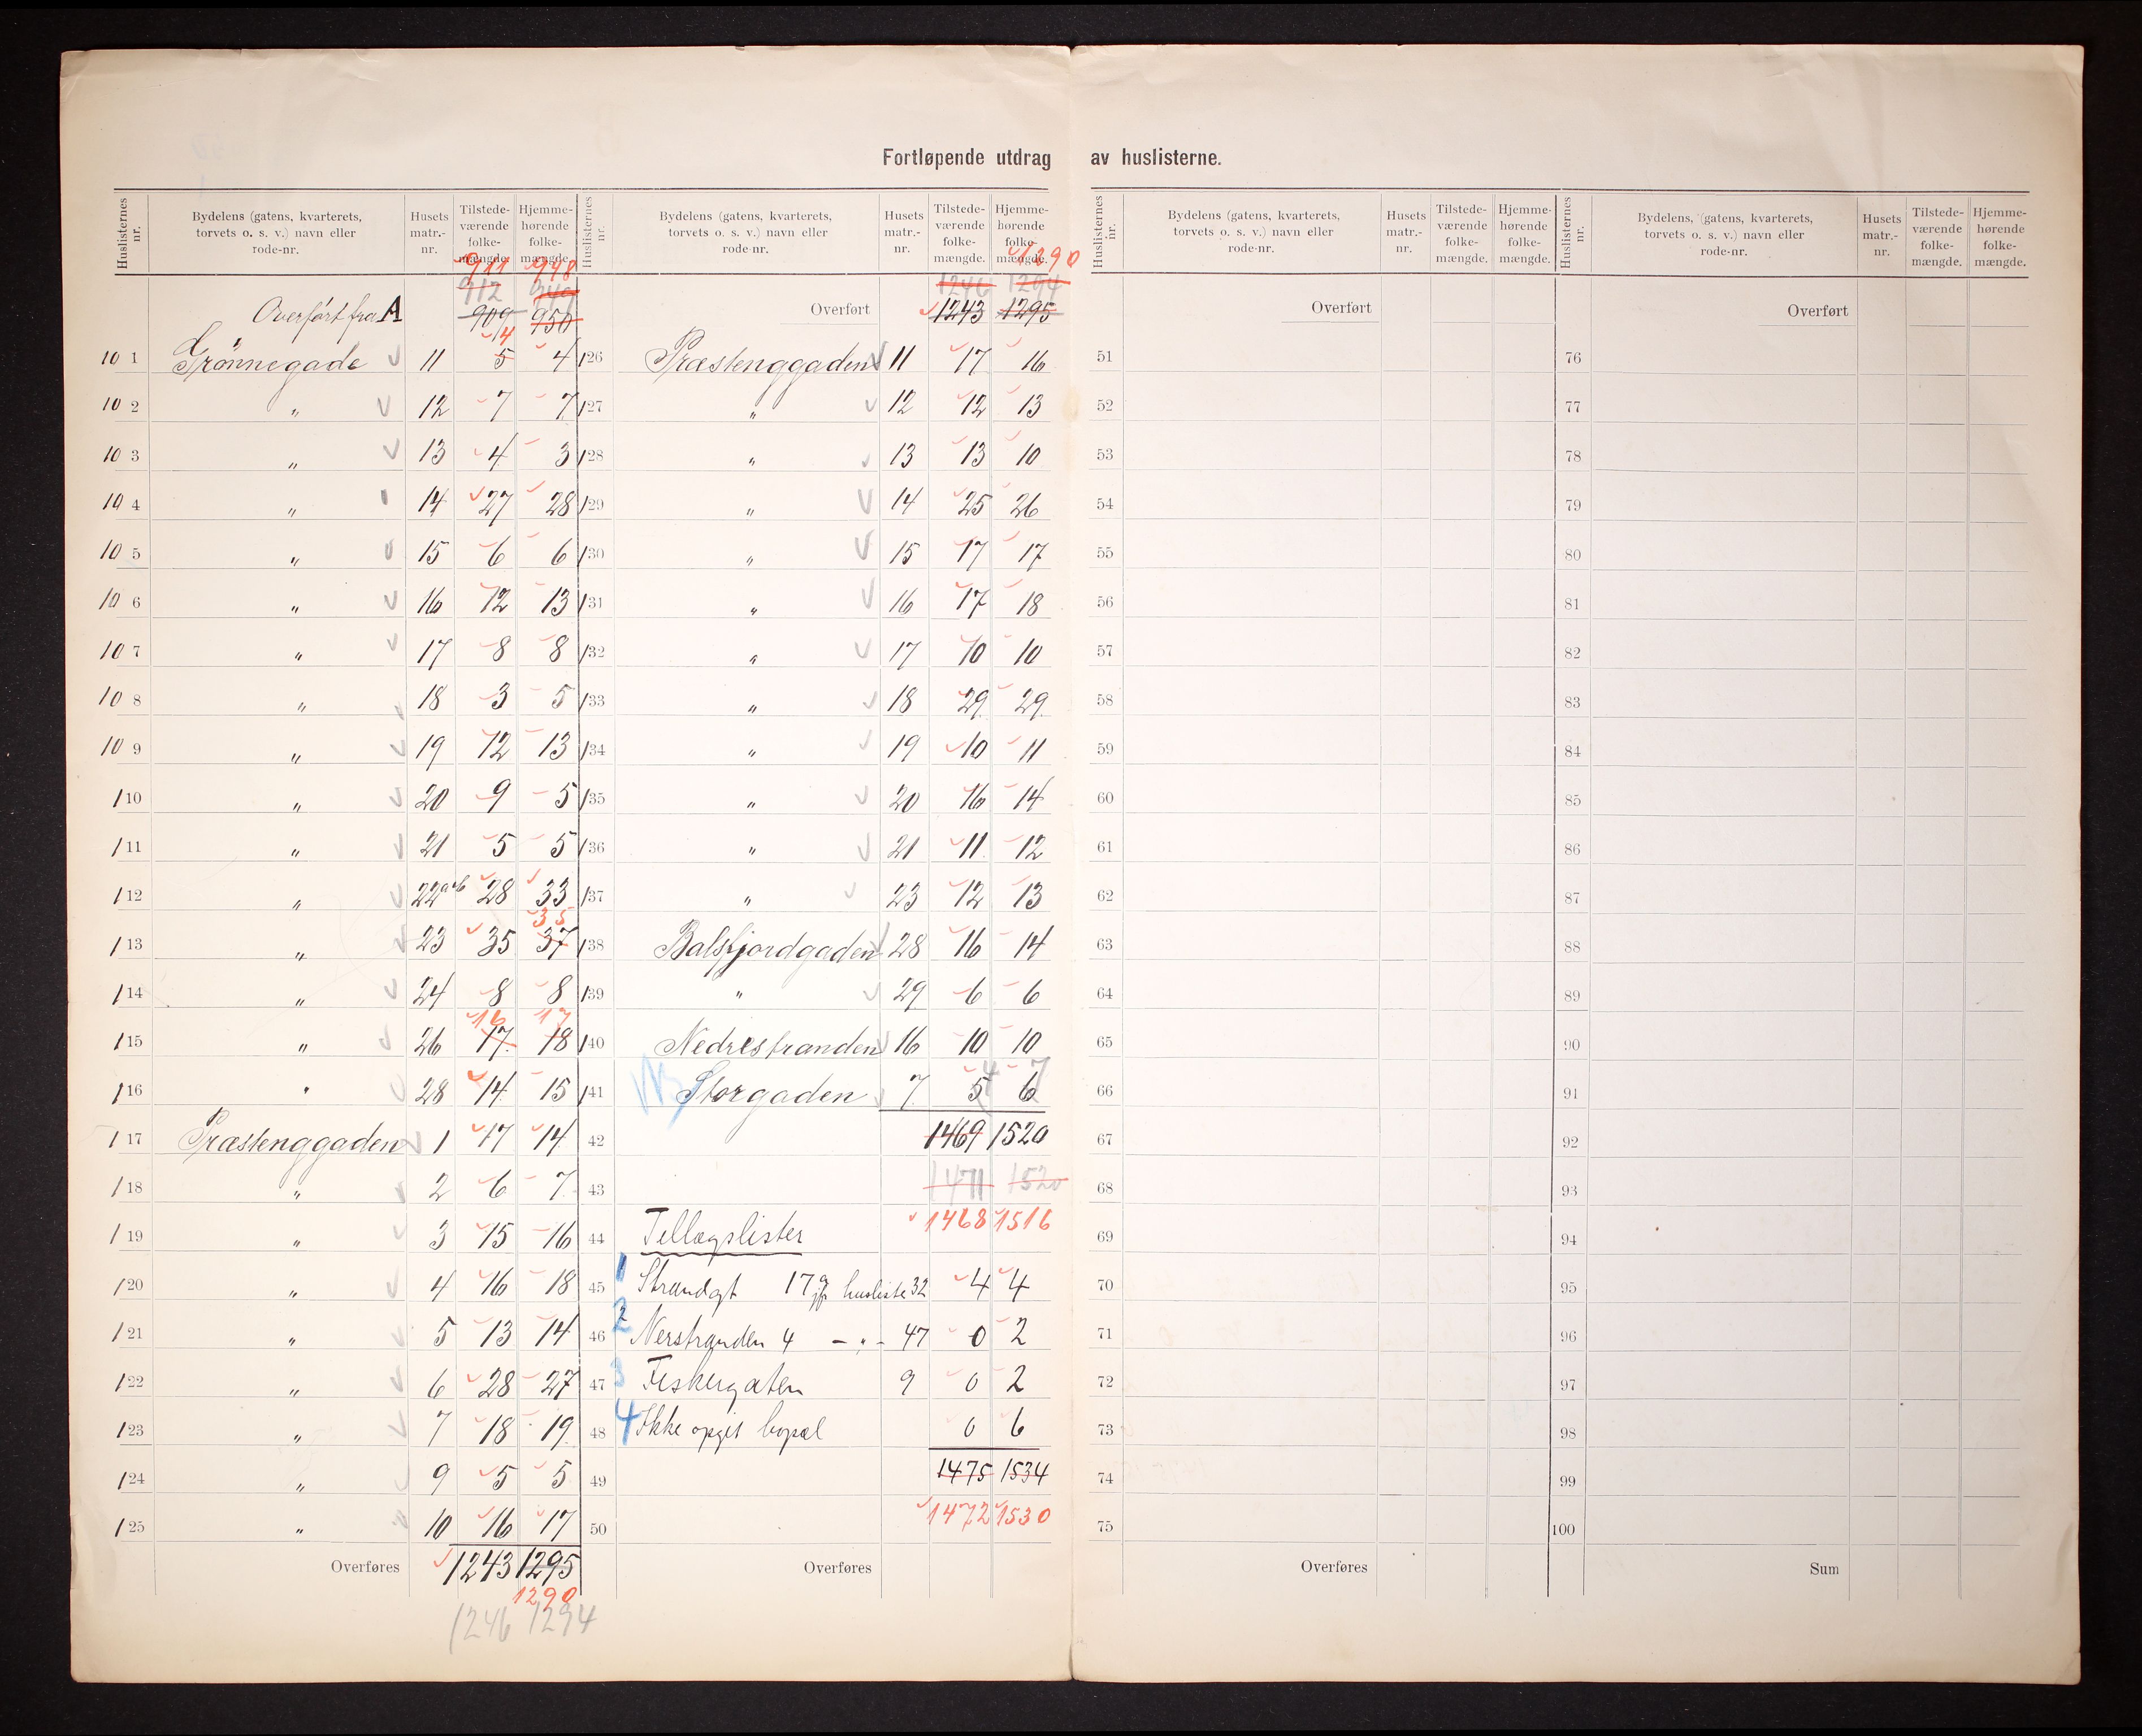 Fortløpende utdrag av huslisterne.
Huslisternes nr. | Bydelens (gatens, kvarterets, torvets o. s. v.) navn eller rode-nr. | Husets matr.-nr. | Tilstede-værende folke-mængde. | Hjemme-hørende folke-mængde.
911 948
912 949
Overført fra A 909 950
4
10 1 Grønnegade 11 5 4
10 2 " 12 7 7
10 3 " 13 4 3
10 4 " 14 27 28
10 5 " 15 6 6
10 6 " 16 12 13
10 7 " 17 8 8
10 8 " 18 3 5
10 9 " 19 12 13
1 10 " 20 9 5
1 11 " 21 5 5
1 12 " 22 a+b 28 33
35
1 13 " 23 35 37
1 14 " 24 8 8
16 17
1 15 " 26 17 18
1 16 " 28 14 15
1 17 Præstenggaden 1 17 14
1 18 " 2 6 7
1 19 " 3 15 16
1 20 " 4 16 18
1 21 " 5 13 14
1 22 " 6 28 27
1 23 " 7 18 19
1 24 " 9 5 5
1 25 " 10 16 17
Overføres 1243 1295
1290
1246 1294
Huslisternes nr. | Bydelens (gatens, kvarterets, torvets o. s. v.) navn eller rode-nr. | Husets matr.-nr. | Tilstede-værende folke-mængde. | Hjemme-hørende folke-mængde.
1290
1246 1294
Overført 1243 1295
1 26 Præstenggaden 11 17 16
1 27 " 12 12 13
1 28 " 13 13 10
1 29 " 14 25 26
1 30 " 15 17 17
1 31 " 16 17 18
1 32 " 17 10 10
1 33 " 18 29 29
1 34 " 19 10 11
1 35 " 20 16 14
1 36 " 21 11 12
1 37 " 23 12 13
1 38 Balsfjordgaden 28 16 14
1 39 " 29 6 6
1 40 Nedrestranden 16 10 10
4 7
1 41 Storgaden 7 5 6
42 1469 1520
43 1471 1520
1468 1516
44 Tillægslister
45 1 Strandgt 17 husliste 32 4 4
46 2 Nerstranden 4 - " - 47 0 2
47 3 Fiskergaten 9 0 2
48 4 Ikke opgit bopæl 0 6
49 1475 1534
50 1472 1530
Overføres
Huslisternes nr. | Bydelens (gatens, kvarterets, torvets o. s. v.) navn eller rode-nr. | Husets matr.-nr. | Tilstede-værende folke-mængde. | Hjemme-hørende folke-mængde.
Overført
51
52
53
54
55
56
57
58
59
60
61
62
63
64
65
66
67
68
69
70
71
72
73
74
75
Overføres
Huslisternes nr. | Bydelens, (gatens, kvarterets, torvets o. s. v.) navn eller rode-nr. | Husets matr.-nr. | Tilstede-værende folke-mængde. | Hjemme-hørende folke-mængde.
Overført
76
77
78
79
80
81
82
83
84
85
86
87
88
89
90
91
92
93
94
95
96
97
98
99
100
Sum